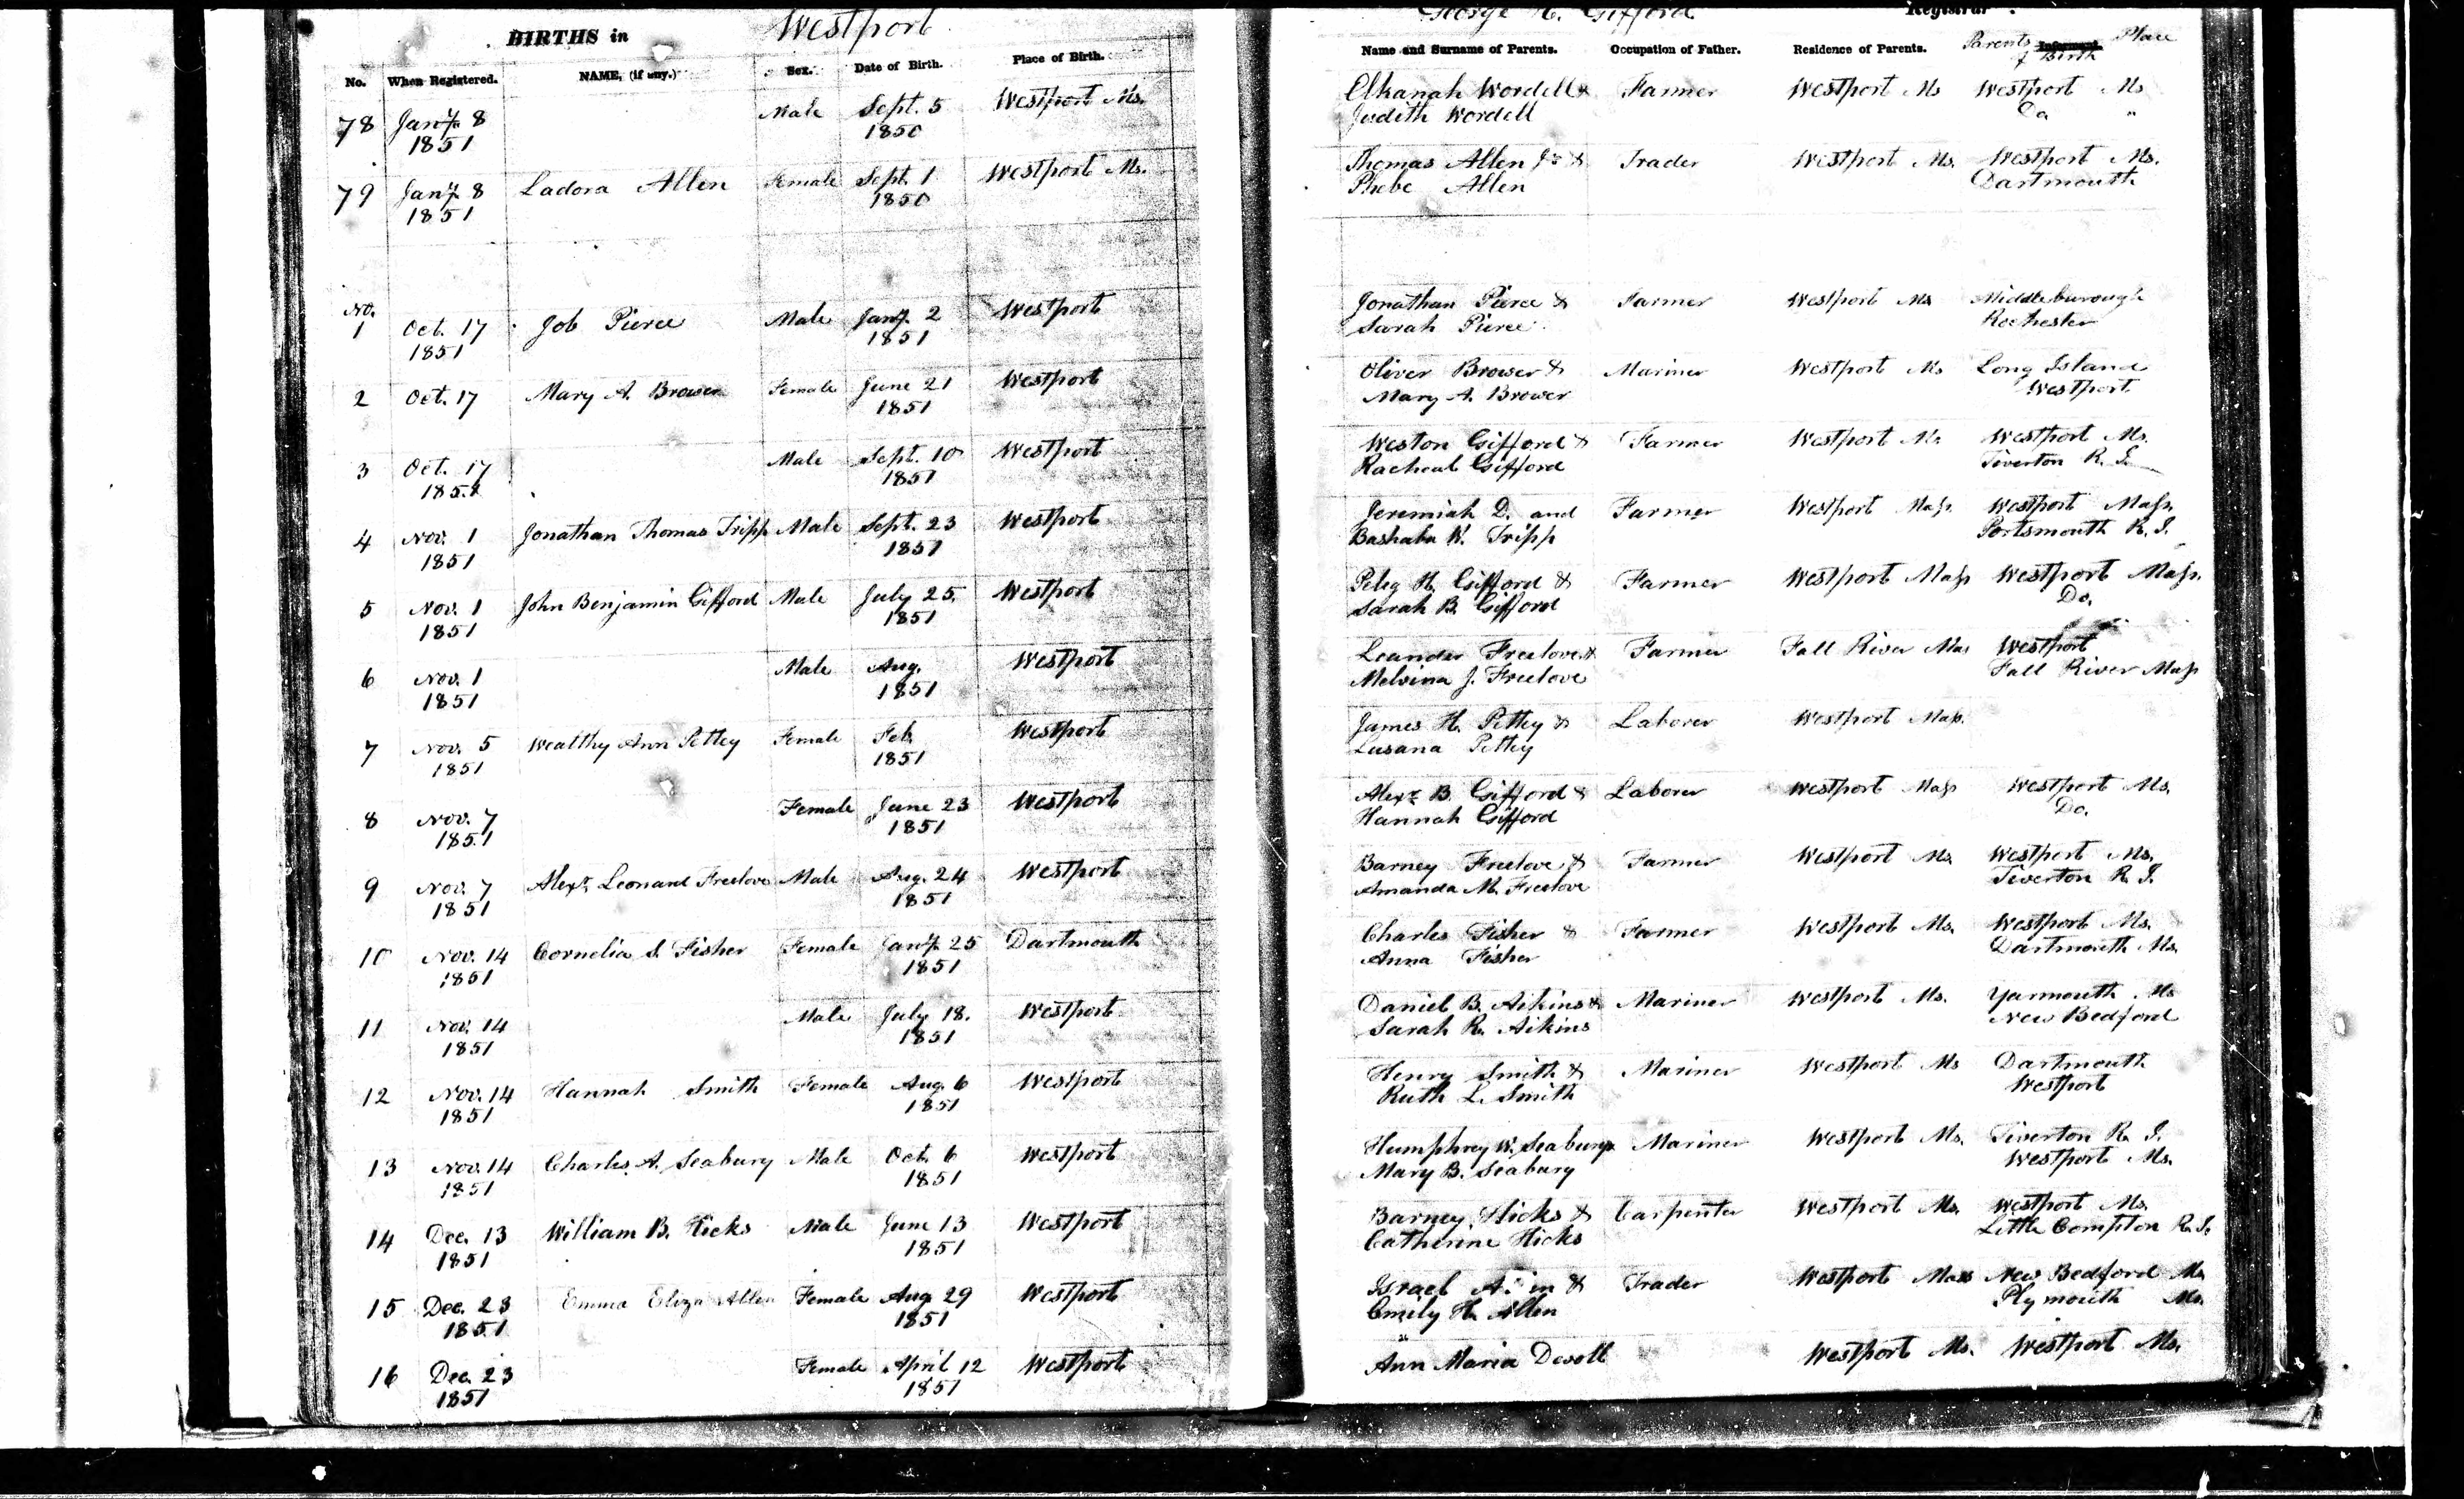 BIRTHS in Westport
George H. Gifford Registrar
No. When Registered. NAME, (if any.) Sex. Date of Birth. Place of Birth. Name and Surname of Parents. Occupation of Father. Residence of Parents. Parents Place
of Birth
78 Jany. 8 Male Sept. 5 Westport Ms. Elkanah Wordell & Farmer Westport Ms Westport Ms
1851 1850 Judith Wordell Do "
79 Jany. 8 Ladora Allen Female Sept. 1 Westport Ms. Thomas Allen Jr. & Trader Westport Ms. Westport Ms.
1851 1850 Phebe Allen Dartmouth
No.
1 Oct. 17 Job Pierce Male Jany. 2 Westport Jonathan Pierce & Farmer Westport Ms Middleborough
1851 1851 Sarah Pierce Rochester
2 Oct. 17 Mary A. Brower Female June 21 Westport Oliver Brower & Mariner Westport Ms Long Island
1851 Mary A. Brower Westport
3 Oct. 17 Male Sept. 10 Westport Weston Gifford & Farmer Westport Ms Westport Ms.
1851 1851 Racheal Gifford Tiverton R. I.
4 Nov. 1 Jonathan Thomas Tripp Male Sept. 23 Westport Jeremiah D. and Farmer Westport Mass. Westport Mass.
1851 1851 Bashaba W. Tripp Portsmouth R. I.
5 Nov. 1 John Benjamin Gifford Male July 25. Westport Peleg H. Gifford & Farmer Westport Mass Westport Mass.
1851 1851 Sarah B. Gifford Do.
6 Nov. 1 Male Aug. Westport Leander Freelove & Farmer Fall River Mas Westport
1851 1851 Melvina J. Freelove Fall River Mass
7 Nov. 5 Wealthy Ann Pettey Female Feb. Westport James H. Pettey & Laborer Westport Mass.
1851 1851 Susana Pettey
8 Nov. 7 Female June 23 Westport Alexr. B. Gifford & Laborer Westport Mass Westport Ms.
1851 1851 Hannah Gifford Do.
9 Nov. 7 Alexr. Leonard Freelove Male Aug. 24 Westport Barney Freelove & Farmer Westport Ms. Westport Ms.
1851 1851 Amanda M. Freelove Tiverton R. I.
10 Nov. 14 Cornelia S. Fisher Female Jany. 25 Dartmouth Charles Fisher & Farmer Westport Ms. Westport Ms.
1851 1851 Anna Fisher Dartmouth Ms.
11 Nov. 14 Male July 18. Westport Daniel B. Aikins & Mariner Westport Ms. Yarmouth Ms
1851 1851 Sarah R. Aikins New Bedford
12 Nov. 14 Hannah Smith Female Aug. 6 Westport Henry Smith & Mariner Westport Ms Dartmouth
1851 1851 Ruth L. Smith Westport
13 Nov. 14 Charles A. Seabury Male Oct. 6 Westport Humphrey W. Seabury & Mariner Westport Ms. Tiverton R. I.
1851 1851 Mary B. Seabury Westport Ms.
14 Dec. 13 William B. Hicks Male June 13 Westport Barney Hicks & Carpenter Westport Ms. Westport Ms.
1851 1851 Catherine Hicks Little Compton R. I.
15 Dec. 23 Emma Eliza Allen Female Aug 29 Westport Israel & Trader Westport Mass New Bedford Ms
1851 1851 Emily H. Allen Plymouth Ms.
16 Dec. 23 Female April 12 Westport Ann Maria Devoll Westport Ms. Westport Ms.
1851 1851